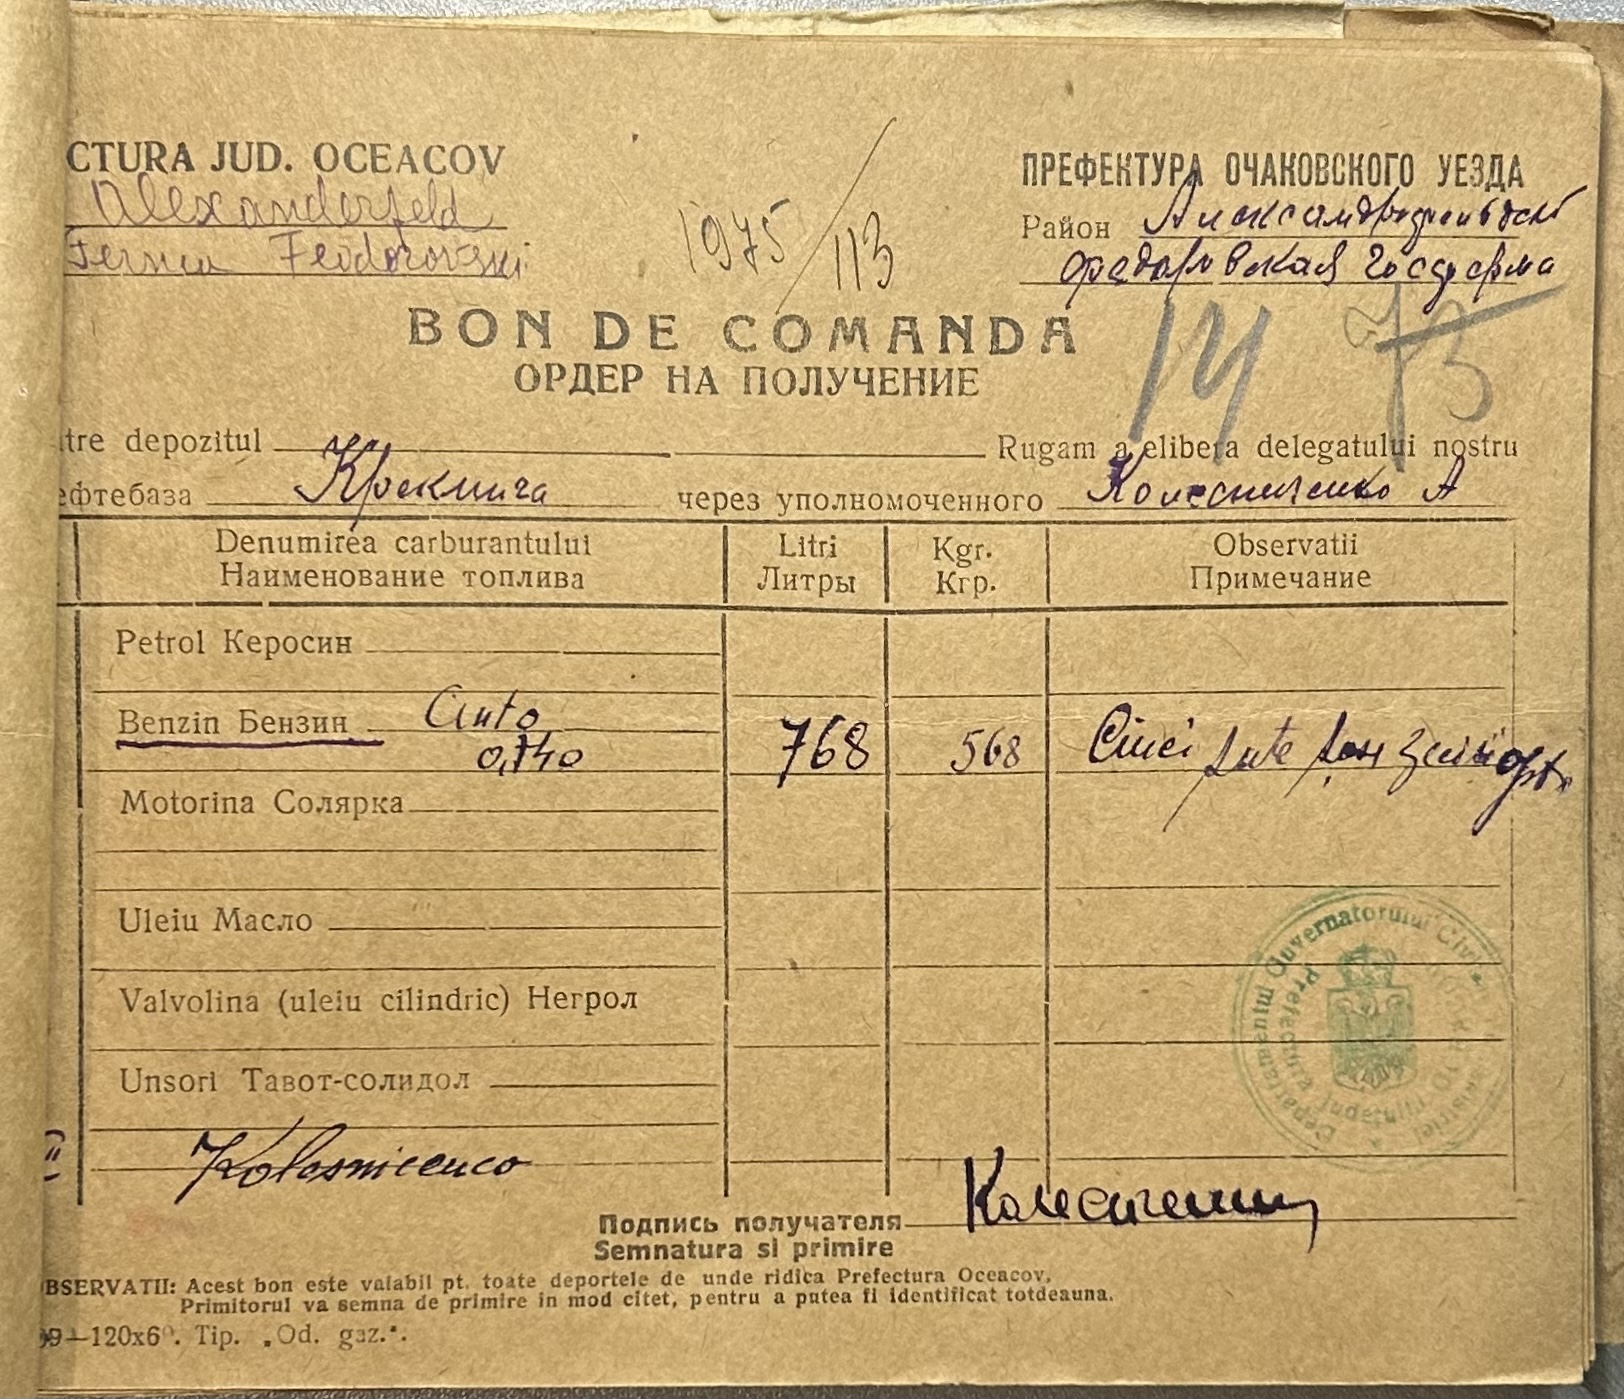 CTURA JUD. OCEACOV
Alexanderfeld
Ferma Feodorovski
1975/113
ПРЕФЕКТУРА ОЧАКОВСКОГО УЕЗДА
Район Александрфельдский
федоровская госферма
BON DE COMANDA
ОРДЕР НА ПОЛУЧЕНИЕ
14 73
tre depozitul Rugam a elibera delegatului nostru
ефтебаза через уполномоченного Колесниченко А
Denumirea carburantului Litri Kgr. Observatii
Наименование топлива Литры Кгр. Примечание
Petrol Керосин
Benzin Бензин Auto 768 568 Cinci sute șase zeci și opt
0,740
Motorina Солярка
Uleiu Масло
Valvolina (uleiu cilindric) Негрол
Unsori Тавот-солидол
Guvernatorului Civil
Prefectura Județului
Kolesnicenco
Подпись получателя Колесниченко
Semnatura si primire
BSERVATII: Acest bon este valabil pt. toate deportele de unde ridica Prefectura Oceacov.
Primitorul va semna de primire in mod citet, pentru a putea fi identificat totdeauna.
99—120x6°. Tip. „Od. gaz.".